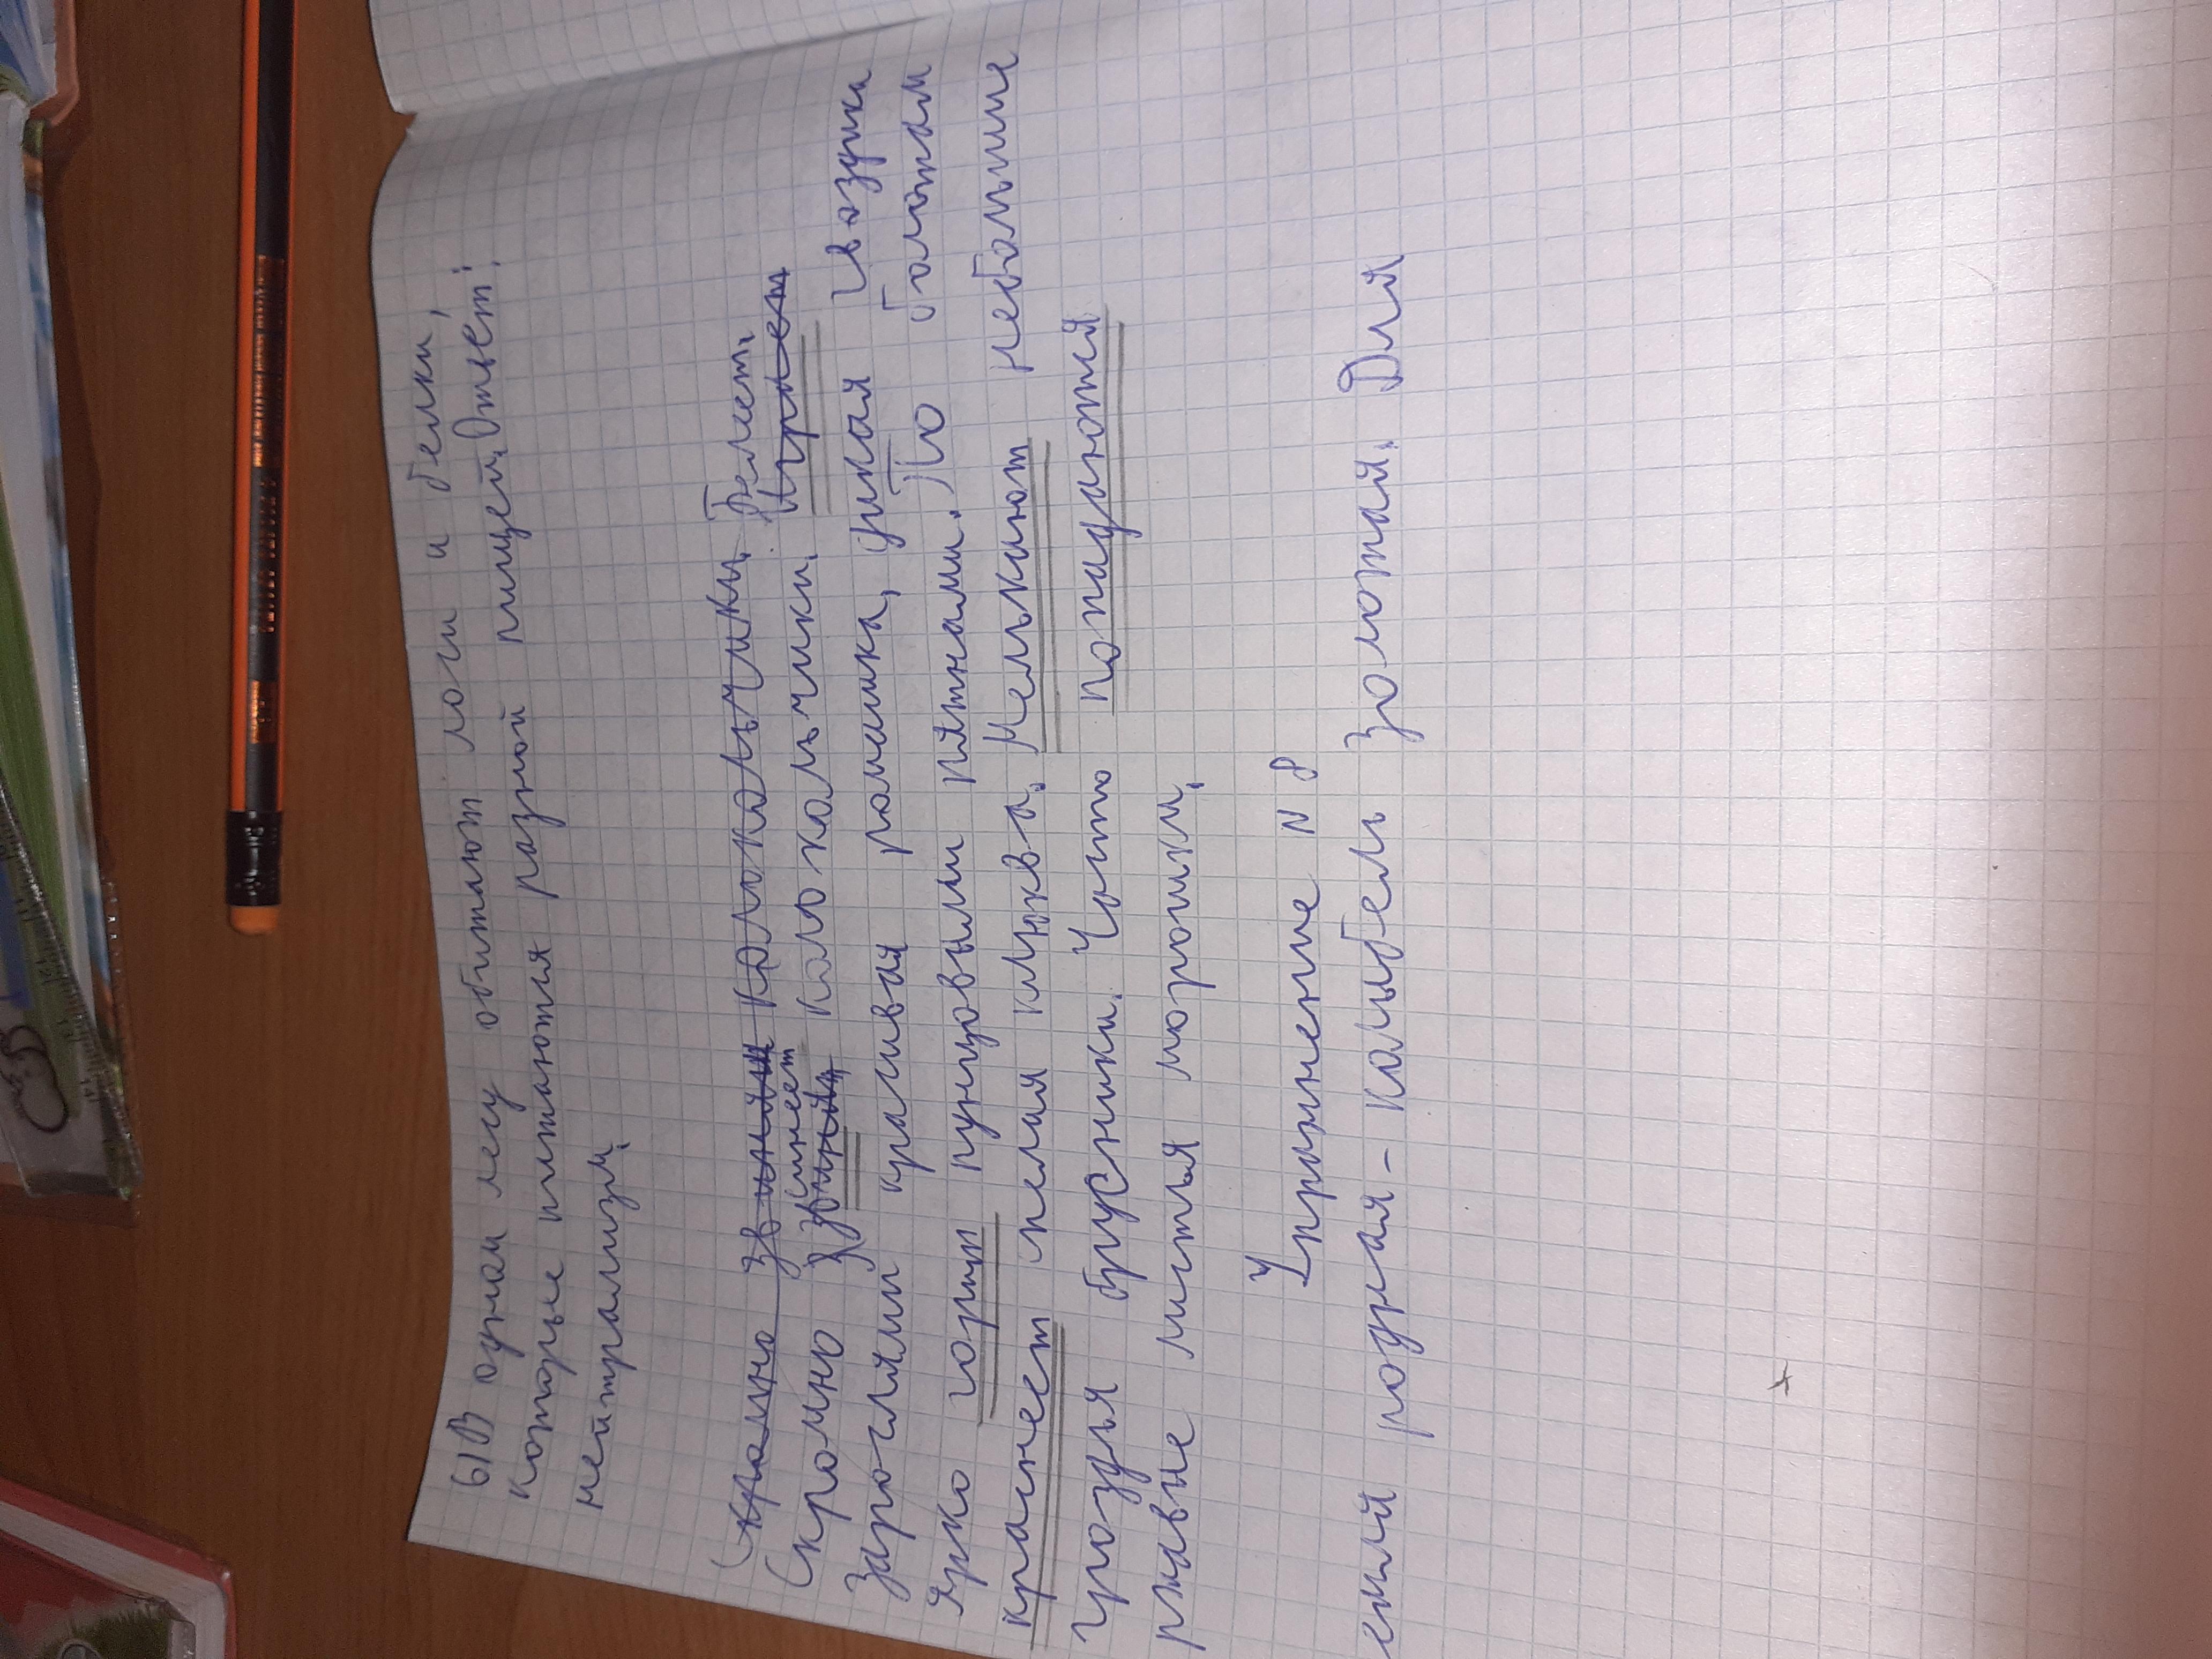 6) В одном лесу обитают лоси и белки,
которые питаются разной пищей. Ответ:
нейтрализм.
Скромно звенят колокольчики. Белеет
Скромно синеет колокольчики. Играет
Зарослями красивая ромашка, дикая гвоздика
ярко горит пунцовыми пятнами. По болотам
краснеет спелая клюква. Мелькают небольшие
гроздья брусники. Часто попадаются
ржавые листья морошки.
Упражнение N 8
родная - колыбель золотая. Для